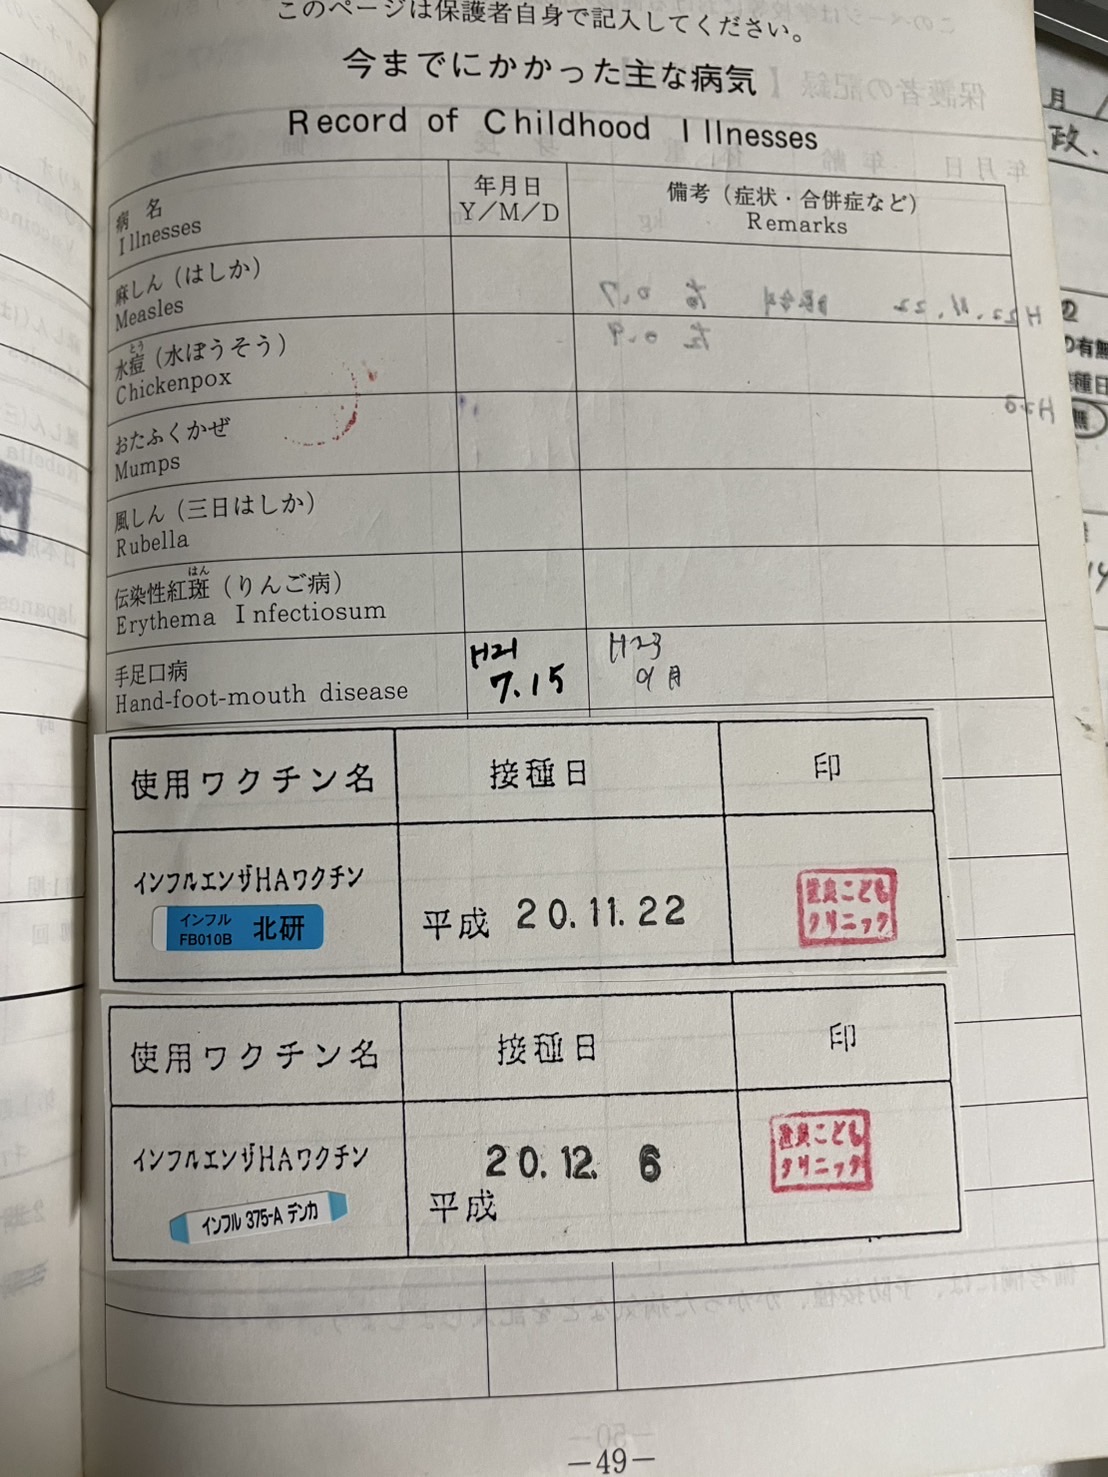 このページは保護者自身で記入してください。
今までにかかった主な病気
Record of Childhood Illnesses
病名
Illnesses
年月日
Y/M/D
備考(症状・合併症など)
Remarks
麻しん(はしか)
Measles
水痘(水ぼうそう)
とう
Chickenpox
おたふくかぜ
Mumps
風しん(三日はしか)
Rubella
伝染性紅斑(りんご病)
はん
Erythema Infectiosum
手足口病
Hand-foot-mouth disease
H21
7.15
H23
9月
使用ワクチン名
接種日
印
インフルエンザHAワクチン
インフル
FB010B
北研
平成 20.11.22
こども
クリニック
使用ワクチン名
接種日
印
インフルエンザHAワクチン
インフル 375-A デンカ
20.12. 6
平成
こども
クリニック
-49-
月
政.
の有無
種日
無